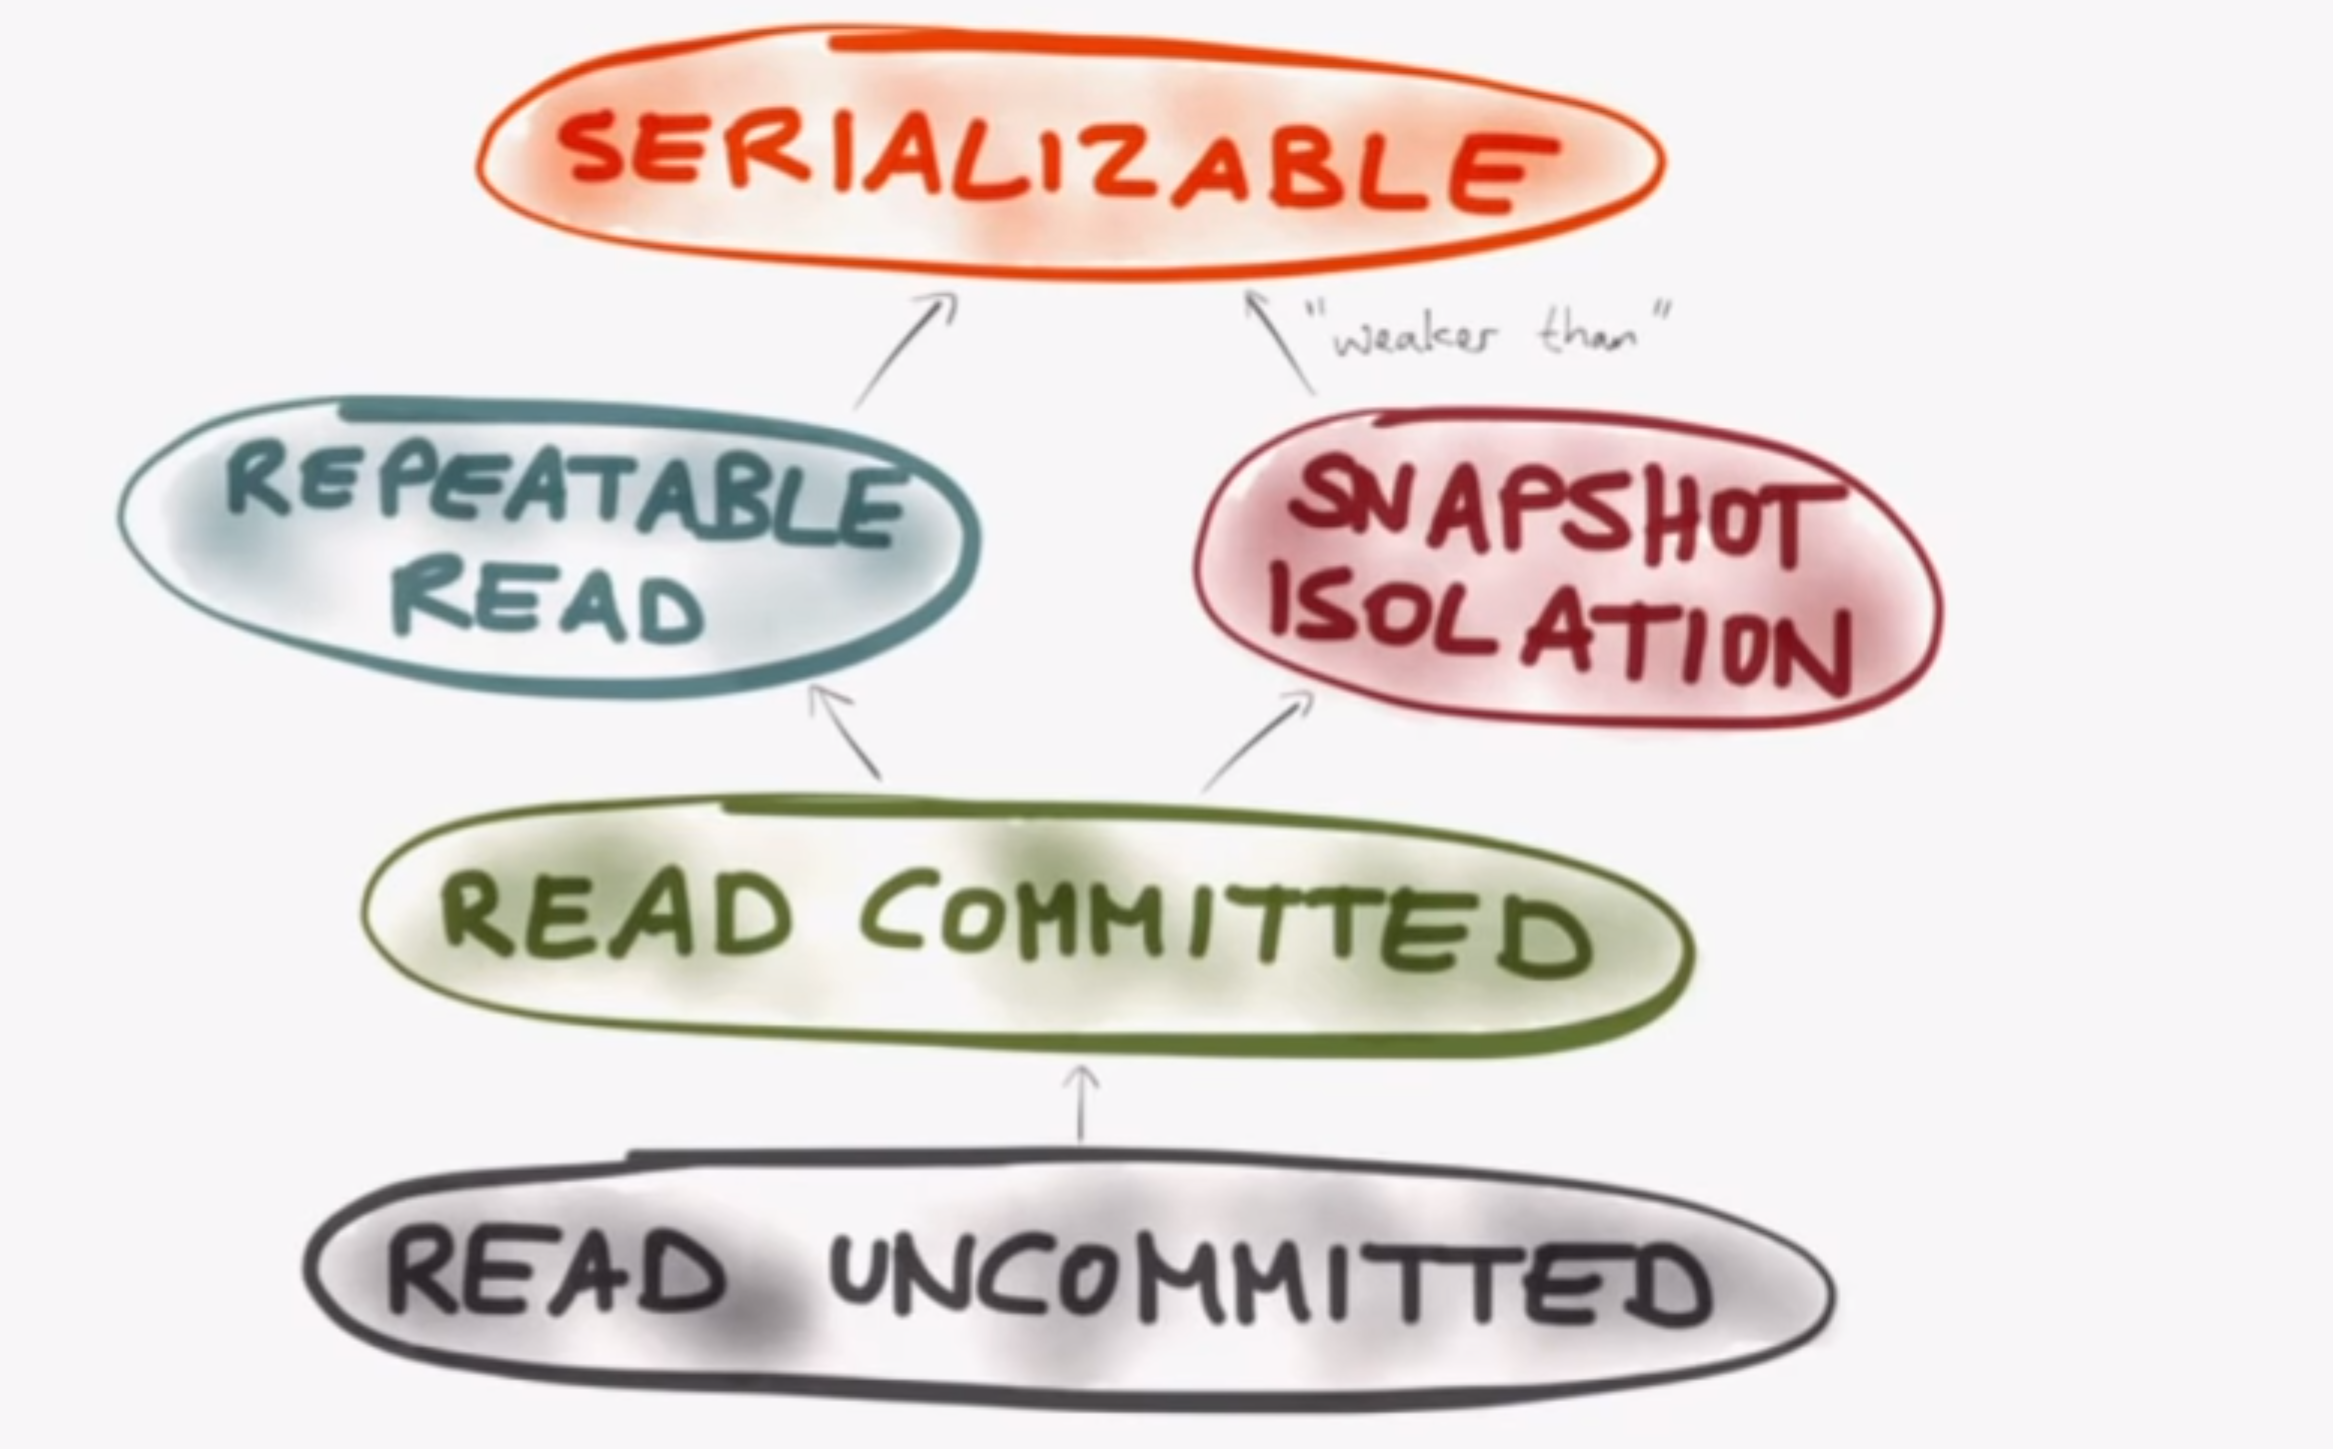 SERIALIZABLE
"weaker than"
REPEATABLE
READ
SNAPSHOT
ISOLATION
READ COMMITTED
READ UNCOMMITTED